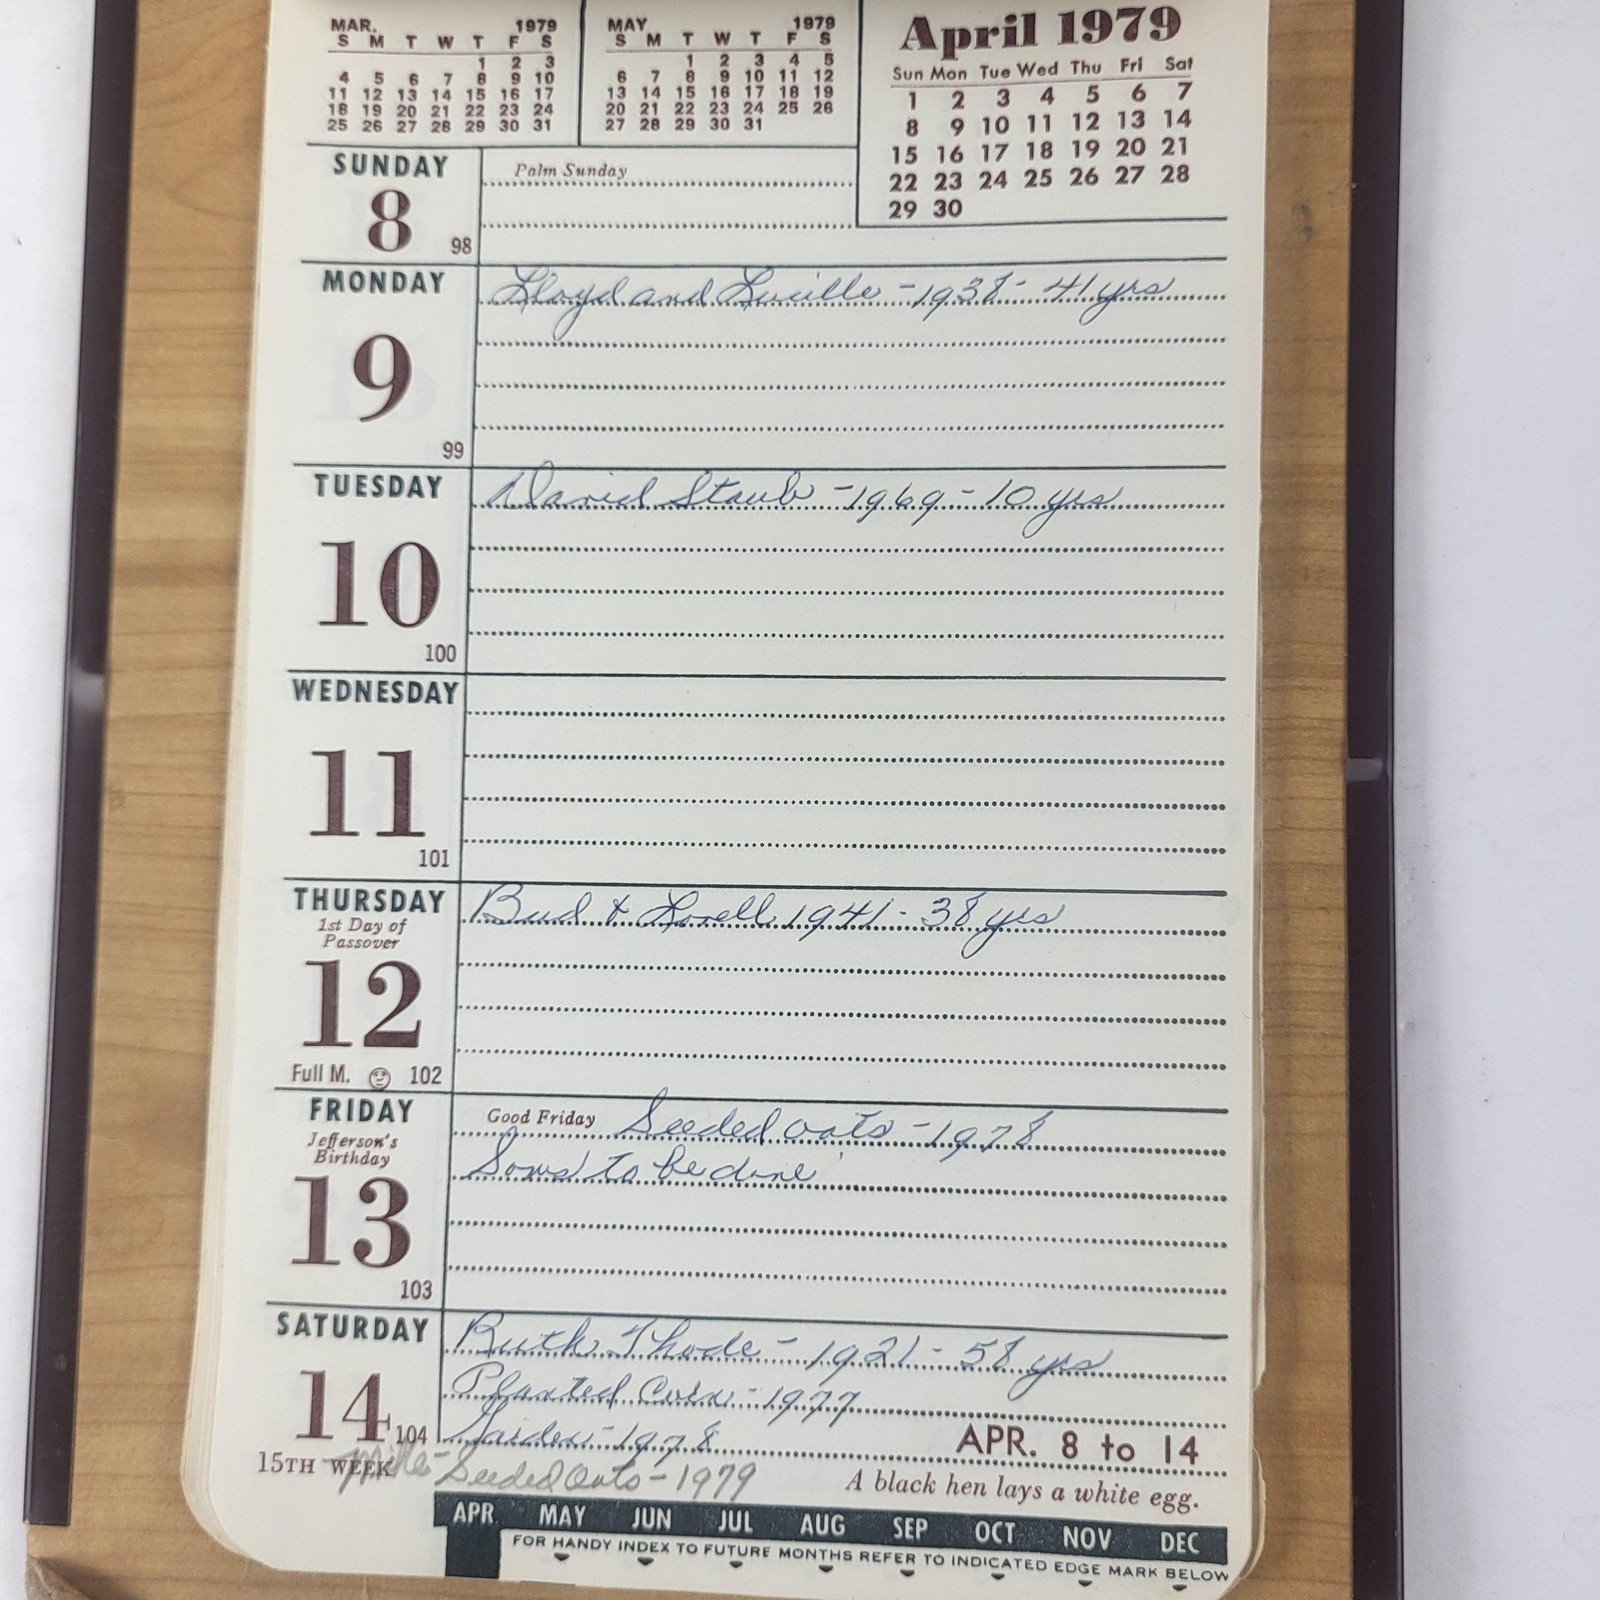 MAR. 1979
S M T W T F S
1 2 3
4 5 6 7 8 9 10
11 12 13 14 15 16 17
18 19 20 21 22 23 24
25 26 27 28 29 30 31
MAY 1979
S M T W T F S
1 2 3 4 5
6 7 8 9 10 11 12
13 14 15 16 17 18 19
20 21 22 23 24 25 26
27 28 29 30 31
April 1979
Sun Mon Tue Wed Thu Fri Sat
1 2 3 4 5 6 7
8 9 10 11 12 13 14
15 16 17 18 19 20 21
22 23 24 25 26 27 28
29 30
SUNDAY
Palm Sunday
8
98
MONDAY
Lloyd and Lucille - 1938 - 41 yrs
9
99
TUESDAY
David Staub - 1969 - 10 yrs
10
100
WEDNESDAY
11
101
THURSDAY
Bud & Lorell 1941 - 38 yrs
1st Day of
Passover
12
Full M. 102
FRIDAY
Good Friday Seeded oats - 1978
Jefferson's
Birthday
Sows to be done
13
103
SATURDAY
Ruth Thode - 1921 - 58 yrs
Planted Corn - 1977
14
104
Garden - 1978
APR. 8 to 14
15TH WEEK
Seeded Oats - 1979
A black hen lays a white egg.
APR MAY JUN JUL AUG SEP OCT NOV DEC
FOR HANDY INDEX TO FUTURE MONTHS REFER TO INDICATED EDGE MARK BELOW